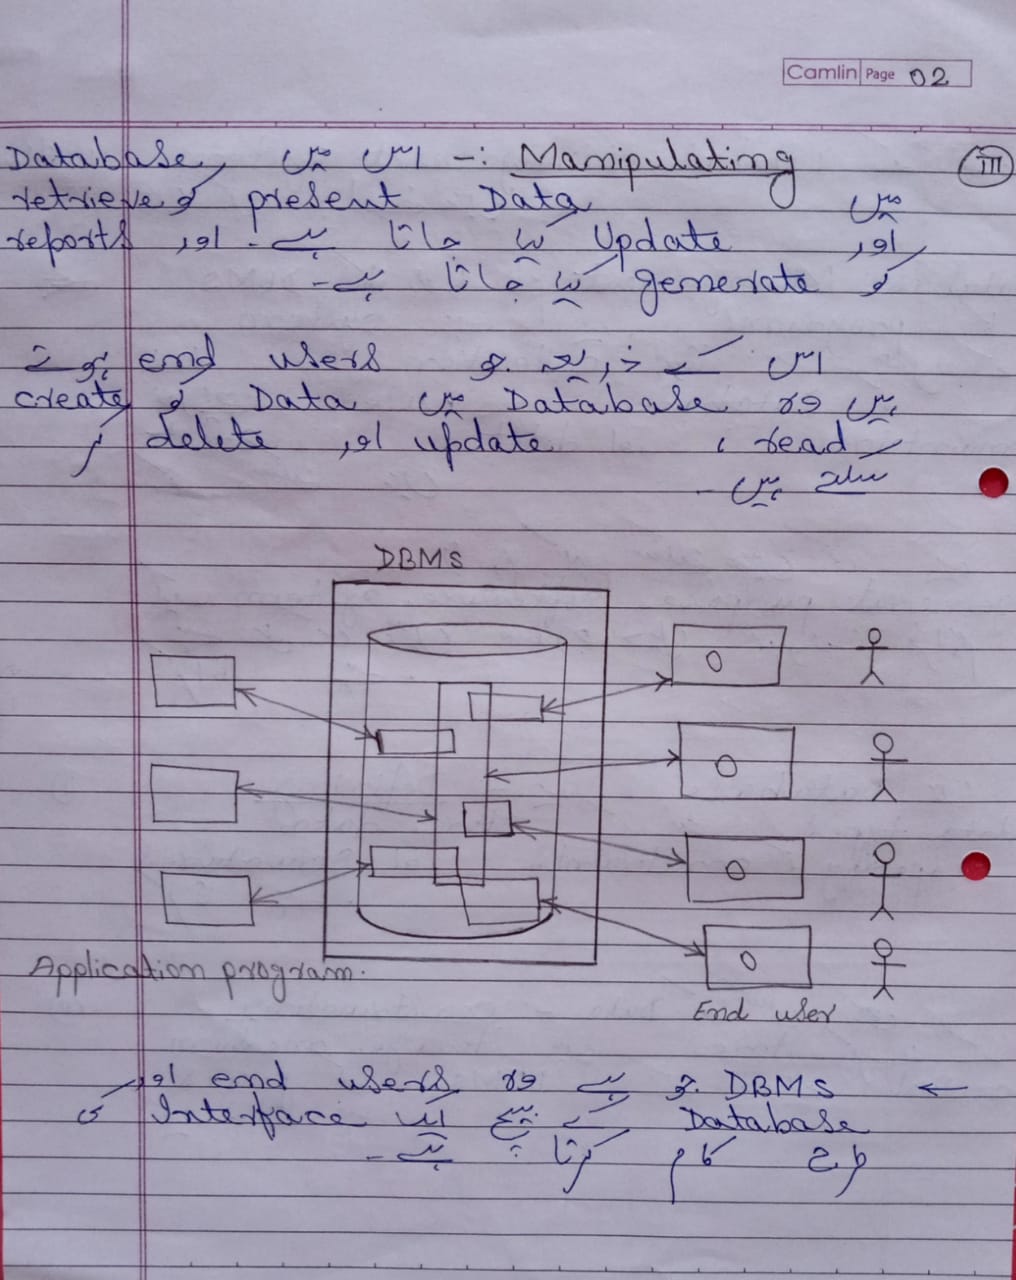 Camlin Page 02
(III) Manipulating :- اس میں Database
میں Data present کو retrieve
اور Update کیا جاتا ہے۔ اور reports
کو generate کیا جاتا ہے۔
اس کے ذریعہ جو end users ہوتے
ہیں وہ Database میں Data کو create
read ، update اور delete کر
سکتے ہیں۔
DBMS
Application program.
End user
← DBMS جو ہے وہ end users اور
Database کے بیچ ایک Interface کی
طرح کام کرتا ہے۔